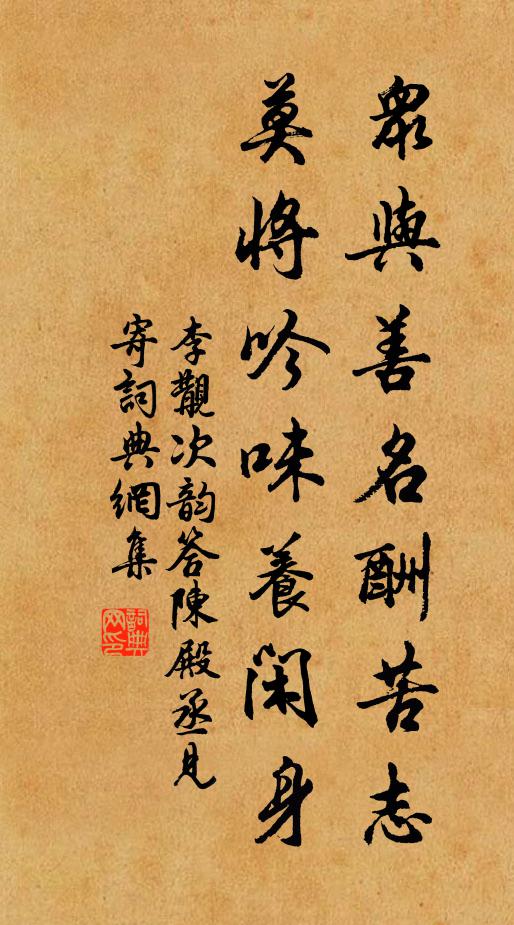 眾與善名酬苦志
莫將吟味養閑身
李覯次韵答陳殿丞見
寄詞典網集
詞典網印